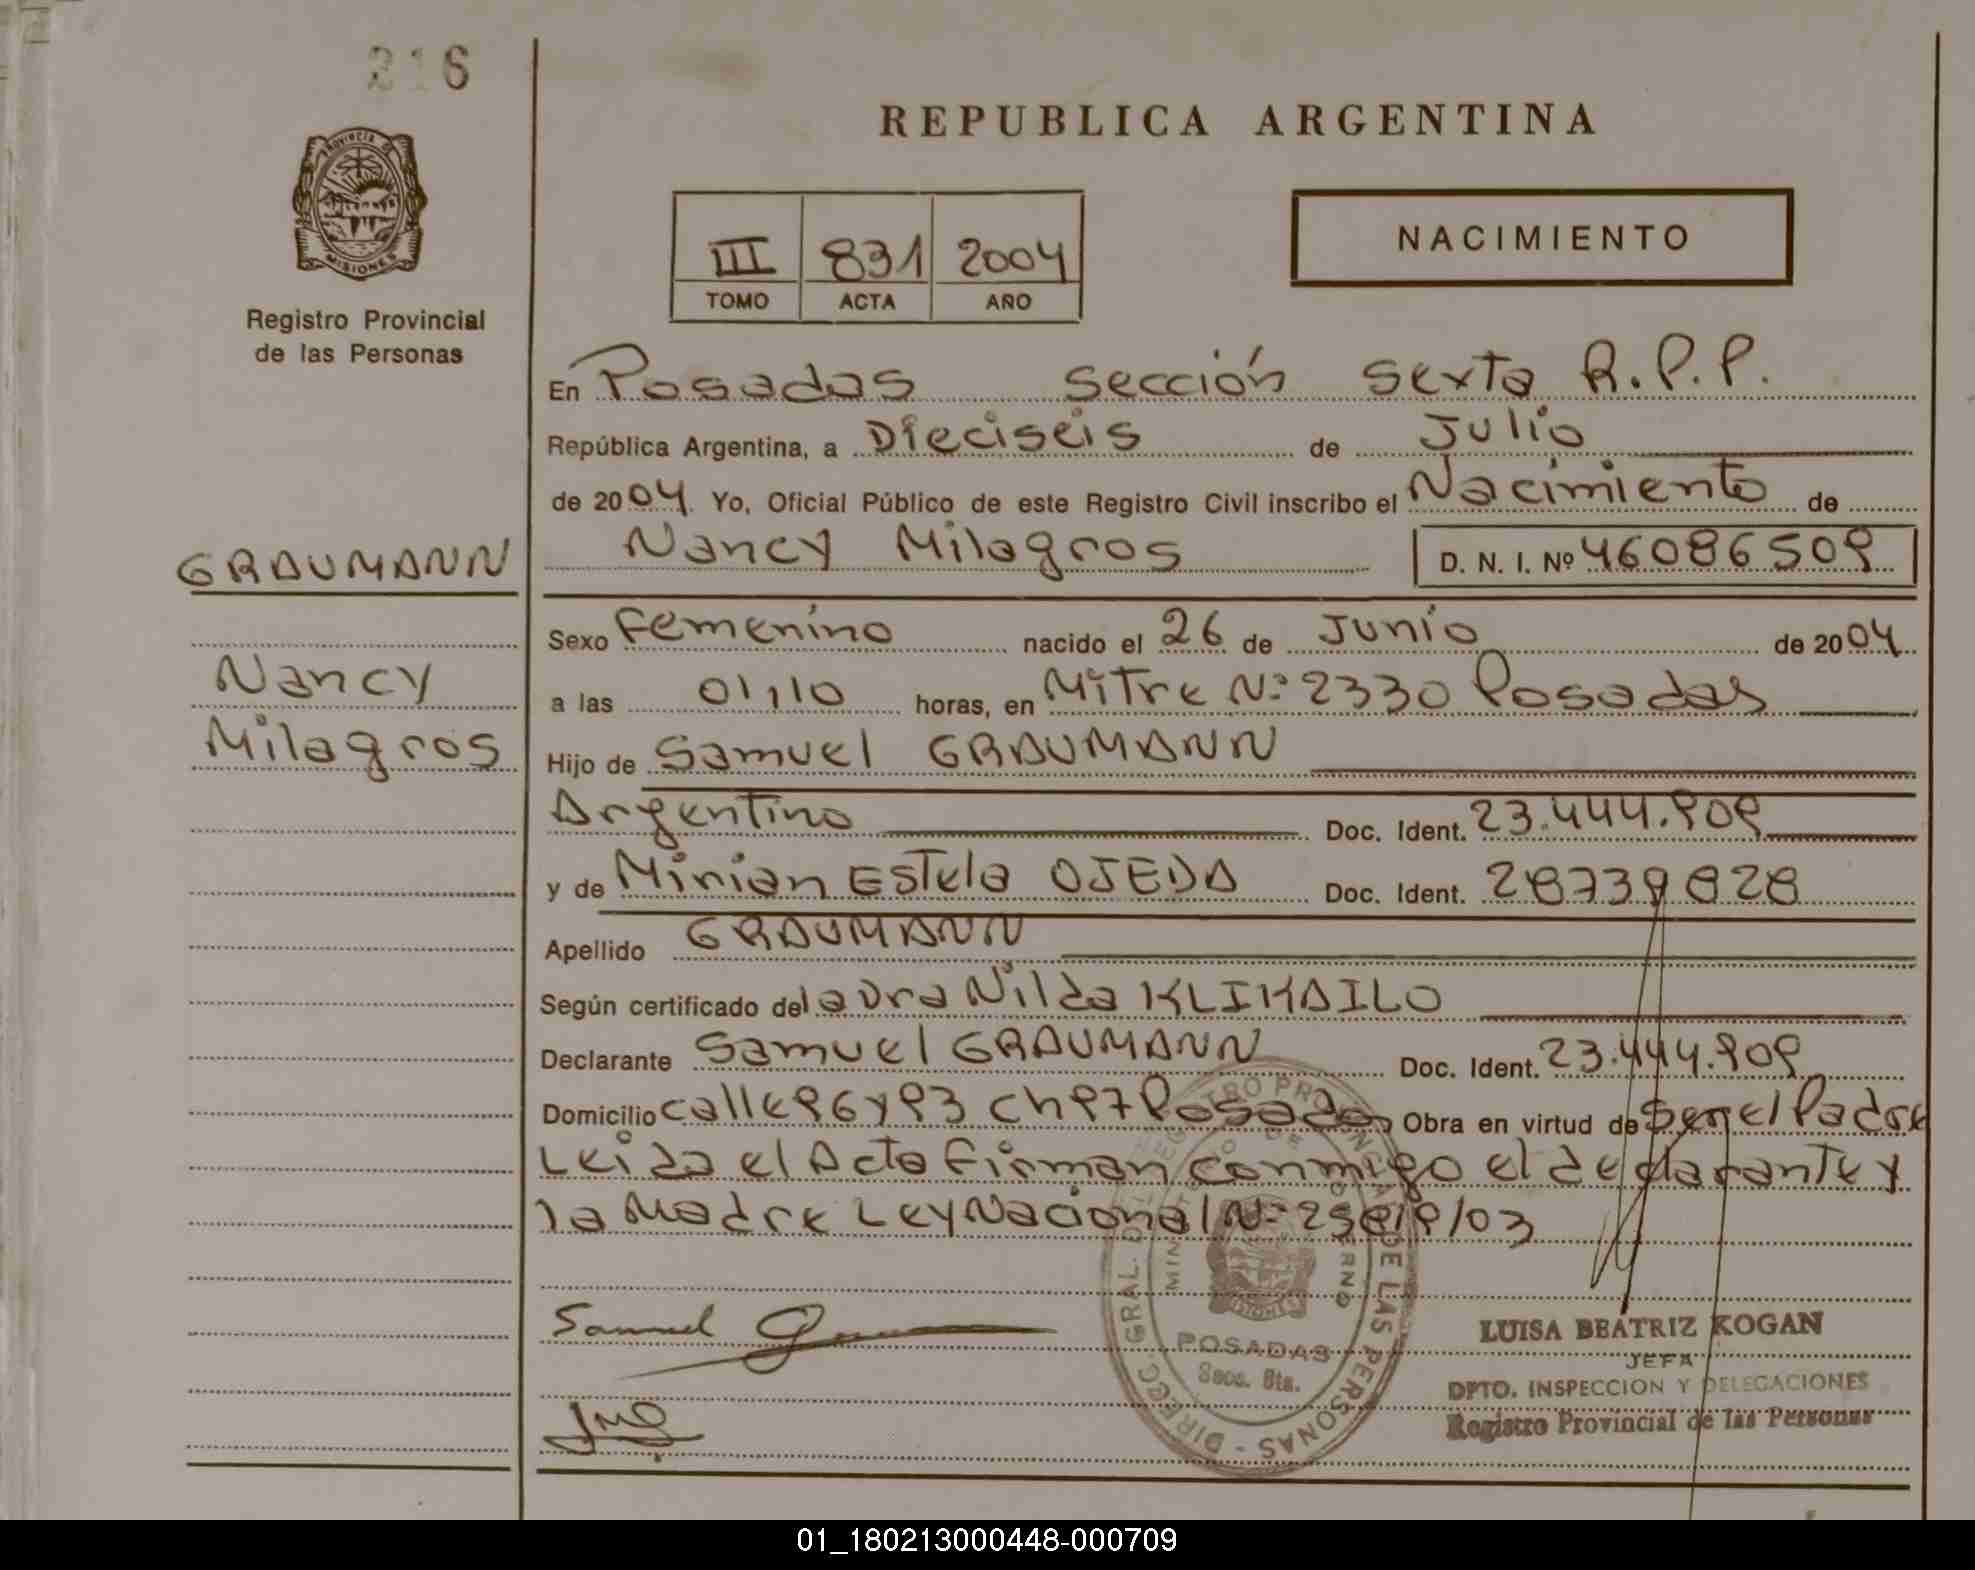 216
PROVINCIA DE
MISIONES
Registro Provincial
de las Personas
GRAUMANN
Nancy
Milagros
REPUBLICA ARGENTINA
III 831 2004
TOMO ACTA AÑO
NACIMIENTO
En Posadas sección sexta R.P.P.
República Argentina, a Dieciseis de Julio
de 2004. Yo, Oficial Público de este Registro Civil inscribo el Nacimiento de
Nancy Milagros D. N. I. Nº 46086509
Sexo Femenino nacido el 26 de Junio de 2004
a las 01,10 horas, en Mitre Nº 2330 Posadas
Hijo de Samuel GRAUMANN
Argentino Doc. Ident. 23.444.909
y de Mirian Estela OJEDA Doc. Ident. 28739828
Apellido GRAUMANN
Según certificado de la Dra Nilda KLIKAILO
Declarante Samuel GRAUMANN Doc. Ident. 23.444.909
Domicilio calle 96 y 93 ch 97 Posadas Obra en virtud de Ser el Padre
Leida el Acta Firman conmigo el declarante y
la Madre Ley Nacional Nº 25819/03
Samuel
DIRECC GRAL. DEL REGISTRO PROVINCIAL DE LAS PERSONAS
MINISTERIO DE GOBIERNO
MISIONES
POSADAS
Secc. 6ta.
LUISA BEATRIZ KOGAN
JEFA
DPTO. INSPECCION Y DELEGACIONES
Registro Provincial de las Personas
01_180213000448-000709